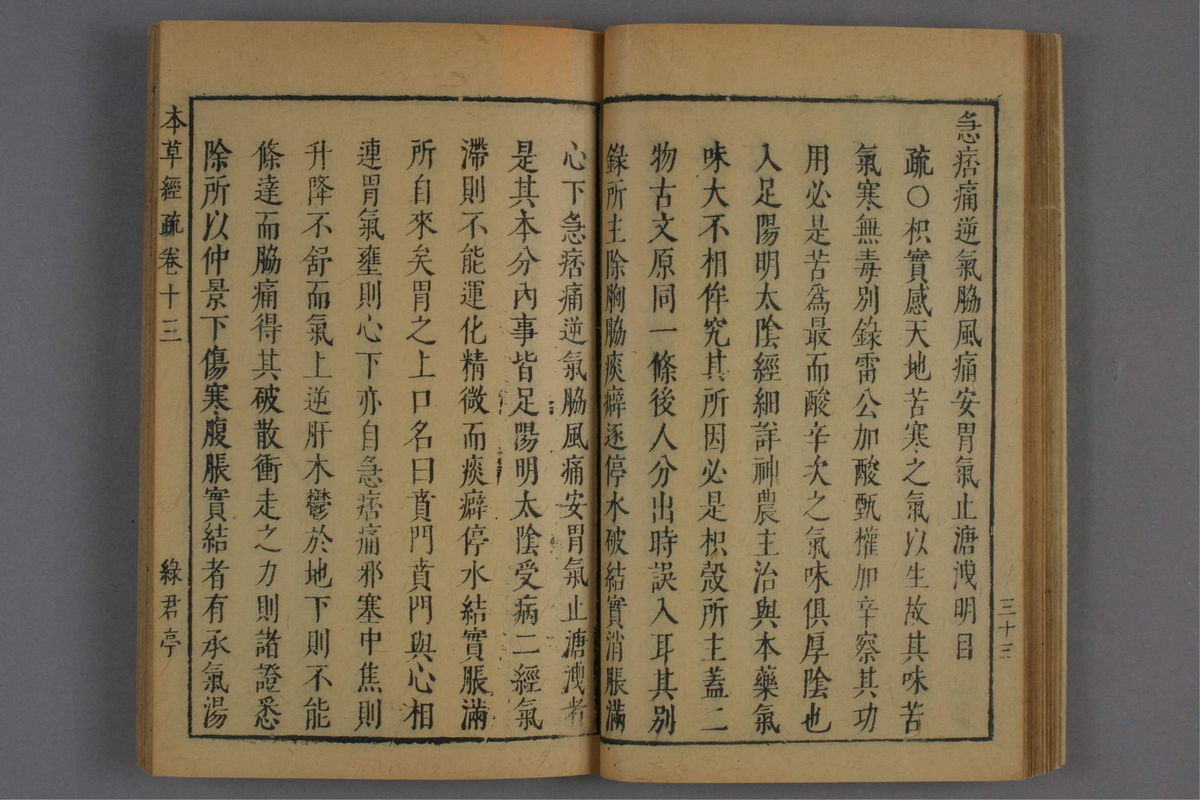 急痞痛逆氣脇風痛安胃氣止溏洩明目
疏〇枳實感天地苦寒之氣以生故其味苦
氣寒無毒別錄雷公加酸甄權加辛察其功
用必是苦爲最而酸辛次之氣味俱厚陰也
入足陽明太陰經細詳神農主治與本藥氣
味大不相侔究其所因必是枳殼所主蓋二
物古文原同一條後人分出時誤入耳其別
錄所主除胸脇痰癖逐停水破結實消脹滿
三十三
心下急痞痛逆氣脇風痛安胃氣止溏洩者
是其本分內事皆足陽明太陰受病二經氣
滯則不能運化精微而痰癖停水結實脹滿
所自來矣胃之上口名曰賁門賁門與心相
連胃氣壅則心下亦自急痞痛邪塞中焦則
升降不舒而氣上逆肝木鬱於地下則不能
條達而脇痛得其破散衝走之力則諸證悉
除所以仲景下傷寒腹脹實結者有承氣湯
本草經疏卷十三
綠君亭